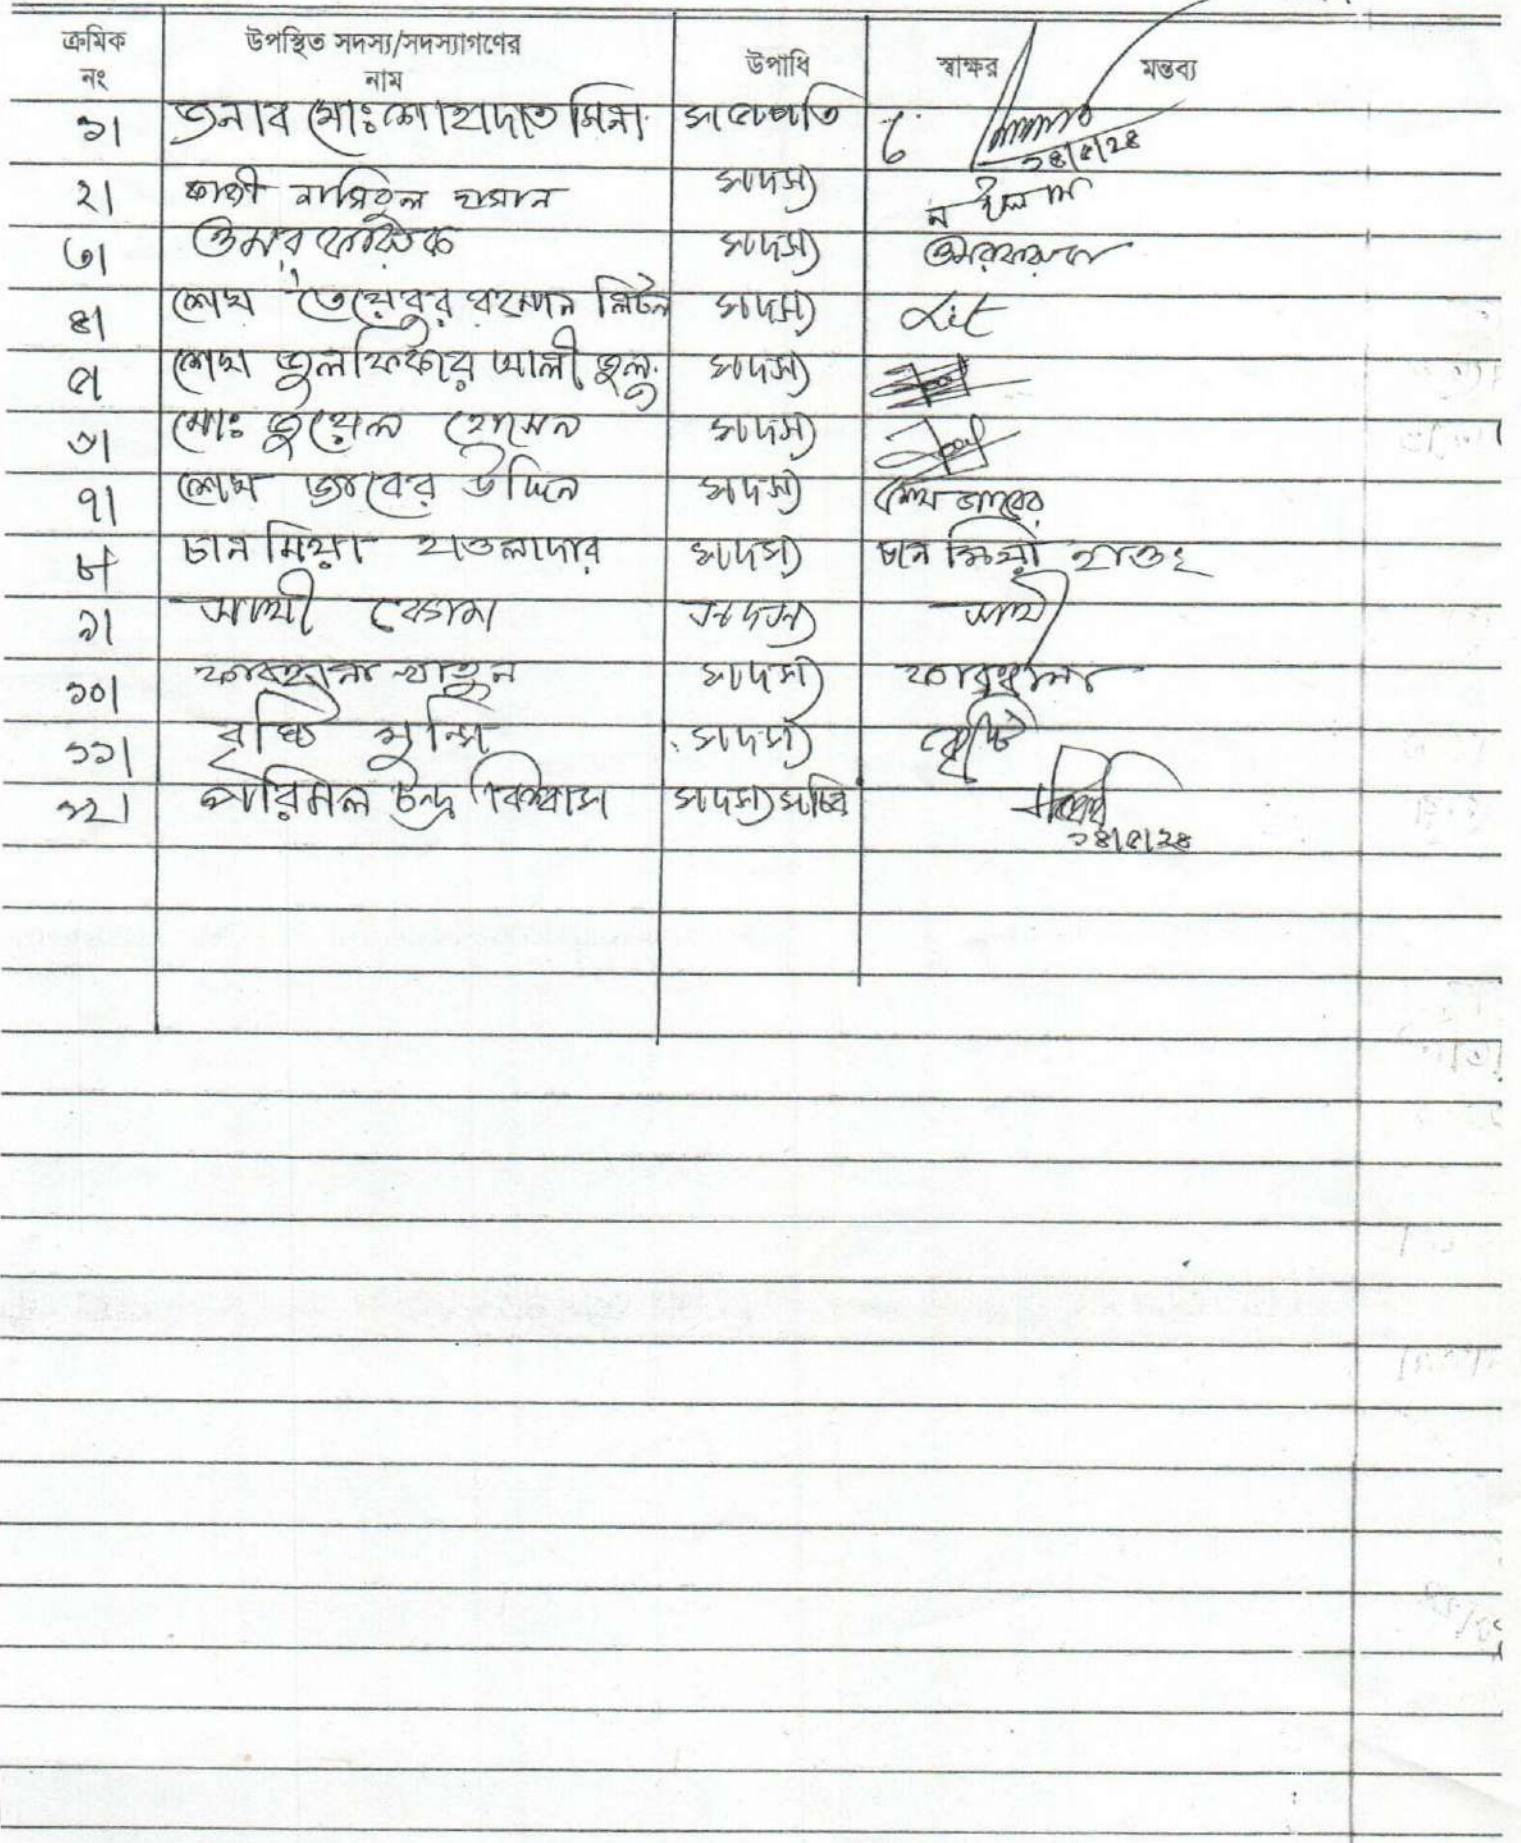 ক্রমিক নং উপস্থিত সদস্য/সদস্যাগণের নাম উপাধি স্বাক্ষর মন্তব্য
১। জনাব মোঃ শাহাদাত মিনা সভাপতি ১৪/৫/২৪
২। কাজী নাসিবুল হাসান সদস্য
৩। ওমর ফারুক সদস্য ওমর ফারুক
৪। শেখ তৈয়েবুর রহমান লিটন সদস্য Lit
৫। শেখ জুলফিকার আলী সদস্য
৬। মোঃ জুয়েল হোসেন সদস্য
৭। শেখ জাবের উদ্দিন সদস্য শেখ জাবের
৮। চান মিয়া হাওলাদার সদস্য চান মিয়া হাওঃ
৯। সাথী বেগম সদস্য সাথী
১০। ফারহানা খাতুন সদস্য ফারহানা
১১। বৃষ্টি মুন্সি সদস্য বৃষ্টি
১২। পরিমল চন্দ্র বিশ্বাস সদস্য সচিব ১৪/৫/২৪